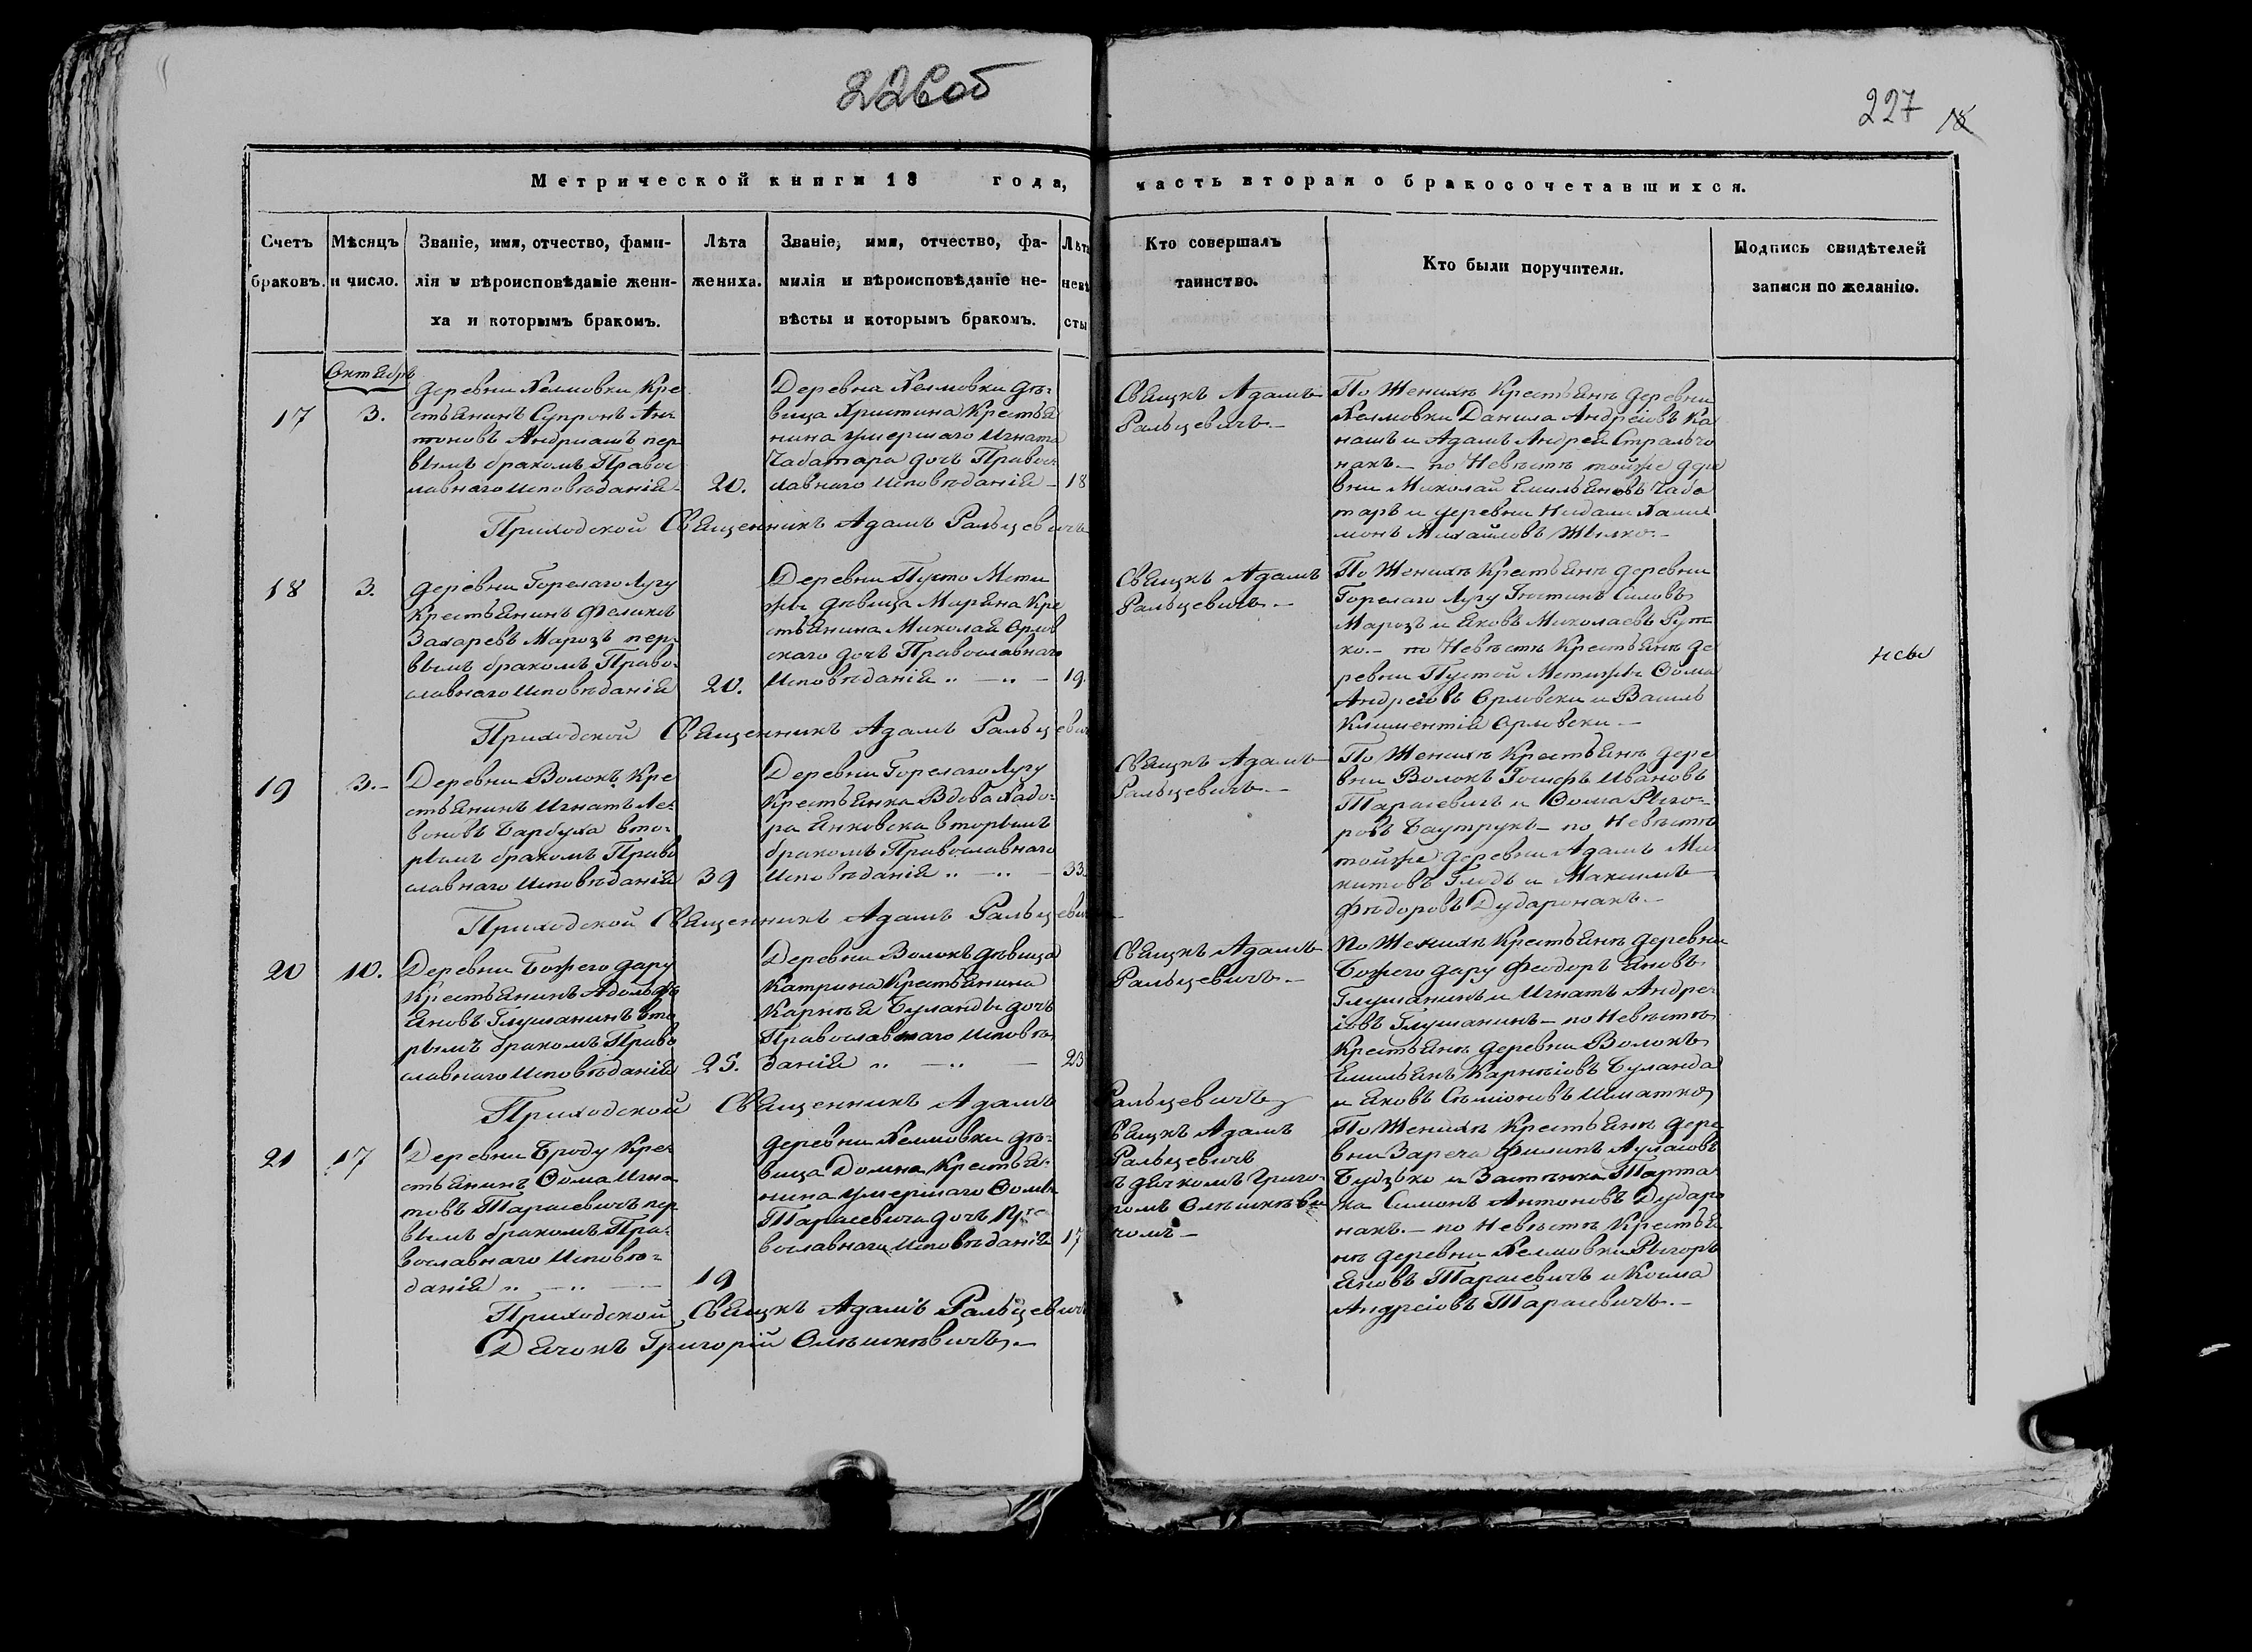 226 об
227 18
Метрической книги 18 года, часть вторая о бракосочетавшихся.
Счетъ браковъ.
Мѣсяцъ и число.
Званіе, имя, отчество, фами-
лія и вѣроисповѣданіе жени-
ха и которымъ бракомъ.
Лѣта
жениха.
Званіе, имя, отчество, фа-
милія и вѣроисповѣданіе не-
вѣсты и которымъ бракомъ.
Лѣта
невѣ
сты
Кто совершалъ
таинство.
Кто были поручители.
Подпись свидѣтелей
записи по желанію.
Октябрь
17
3.
деревни Хелмовки Кре
стьянинъ Супронъ Ан
тоновъ Андриашъ пер
вымъ бракомъ Правос
лавнаго исповѣданія
20.
Деревни Хелмовки дѣ-
вица Христина Крестья
нина умершаго Игната
Чабатара дочь Правос
лавнаго исповѣданія —
18
Свящкъ Адамъ
Ральцевичъ. —
По Женихѣ Крестьянѣ деревни
Хелмовки Данила Андреіовъ Ка
нашъ и Адамъ Андрея Стральчо
накъ. — по Невѣстѣ тойже дере
вни Миколай Емильяновъ Чаба
таръ и деревни
монъ Михайловъ Жылко. —
Приходской Священникъ Адамъ Ральцевичъ
18
3.
деревни Горелаго Лугу
Крестьянинъ Феликсъ
Захаревъ Марозъ пер-
вымъ бракомъ Право-
славнаго исповѣданія
20.
Деревни Пусто Мсти
жы дѣвица Марьяна Кре
стьянина Миколая Орлов
скаго дочь Православнаго
Исповѣданія „ — „ —
19.
Свящкъ Адамъ
Ральцевичъ. —
По Женихѣ Крестьянѣ деревни
Горелаго Лугу Іюстинъ Силовъ
Марозъ и Яковъ Миколаевъ Рут
ко. — по Невѣстѣ Крестьянѣ де
ревни Пустой Мстижы Ѳома
Андреіовъ Орловски и Василь
Климентія Орловски —
Приходской Священникъ Адамъ Ральцевич
19
3. —
Деревни Волокъ Кре
стьянинъ Игнатъ Ле-
воновъ Барбуха вто-
рымъ бракомъ Право
славнаго исповѣданія
39
Деревни Горелаго Лугу
Крестьянка Вдова Хадо-
ра Янковска вторымъ
бракомъ Православнаго
Исповѣданія „ — „ —
33.
Свящкъ Адамъ
Ральцевичъ. —
По Женихѣ Крестьянѣ дере
вни Волокъ Іосифъ Ивановъ
Тарасевичъ и Ѳома Рыго-
ровъ Баутрукъ — по Невѣстѣ
тойже деревни Адамъ Ми-
китовъ Глодъ и Максимъ
Фѣдоровъ Дударонакъ. —
Приходской Священникъ Адамъ Ральцеви
20
10.
Деревни Божего дару
Крестьянинъ Адольфъ
Яновъ Глушанинъ вто
рымъ бракомъ Право
славнаго исповѣданія
25.
Деревни Волокъ дѣвица
Катрина Крестьянина
Карнѣя Буланды дочь
Православнаго Исповѣ
данія „ — „ —
23
Свящкъ Адамъ
Ральцевичъ. —
По Женихѣ Крестьянѣ деревни
Божего дару Феодоръ Яновъ
Глушанинъ и Игнатъ Андре-
іовъ Глушанинъ — по Невѣстѣ
Крестьянѣ деревни Волокъ
Емильянъ Карнѣіовъ Буланда
и Яковъ Сѣміоновъ Шматко
Приходской Священникъ Адамъ Ральцевичъ
21
17
Деревни Броду Кре-
стьянинъ Ѳома Игна
товъ Тарасевичъ пер
вымъ бракомъ Пра-
вославнаго Исповѣ-
данія „ — „ —
19
деревни Хелмовки дѣ-
вица Домна Крестья-
нина умершаго Ѳомы
Тарасевича дочь Пра
вославнаго Исповѣданія
17
Свящкъ Адамъ
Ральцевичъ
съ дячкомъ Григо-
ромъ Олѣшкѣви
чомъ —
По Женихѣ Крестьянѣ дере
вни Заречa Филипъ Ауласовъ
Будзько и Застѣнка Тарта
ка Симонъ Антоновъ Дудара
накъ. — по Невѣстѣ Крестья
нѣ деревни Хелмовки Рыгоръ
Яновъ Тарасевичъ и Косма
Андреіовъ Тарасевичъ. —
Приходской Свящкъ Адамъ Ральцевич
Дячокъ Григорій Олѣшкѣвичъ. —